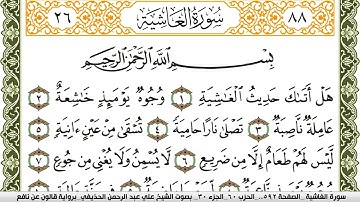 ٨٨ سُورَةُ الغَاشِيَةِ ٢٦
بِسْمِ اللَّهِ الرَّحْمَٰنِ الرَّحِيمِ
هَلْ أَتَىٰكَ حَدِيثُ الْغَٰشِيَةِ ١ وُجُوهٌ يَوْمَئِذٍ خَٰشِعَةٌ ٢
عَامِلَةٌ نَّاصِبَةٌ ٣ تَصْلَىٰ نَارًا حَامِيَةً ٤ تُسْقَىٰ مِنْ عَيْنٍ ءَانِيَةٍ ٥
لَّيْسَ لَهُمْ طَعَامٌ إِلَّا مِن ضَرِيعٍ ٦ لَّا يُسْمِنُ وَلَا يُغْنِي مِن جُوعٍ ٧
سورة الغاشية.. الصفحة ٥٩٢.. الحزب ٦٠ الجزء ٣٠.. بصوت الشيخ علي عبد الرحمن الحذيفي.. برواية قالون عن نافع